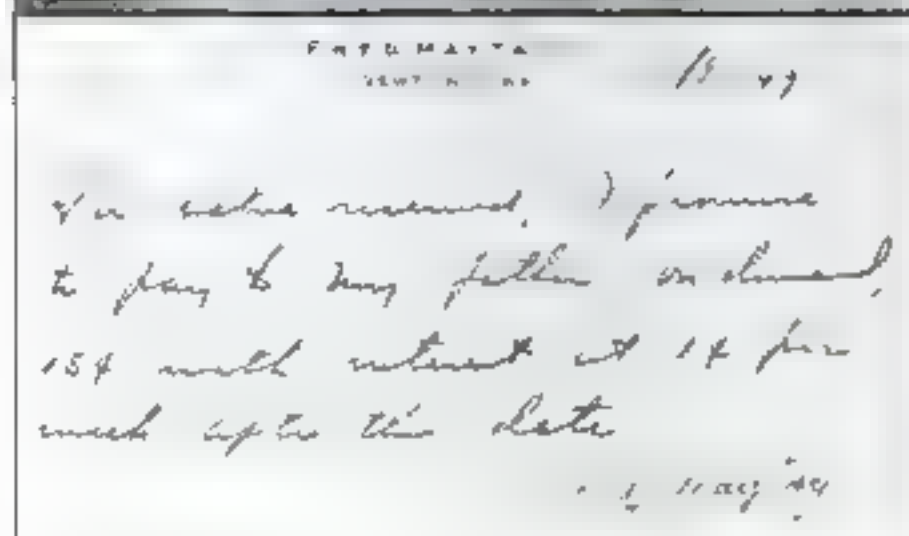 For value received, I promise
to pay to my father on demand,
15¢ with interest at 1¢ per
week after this date